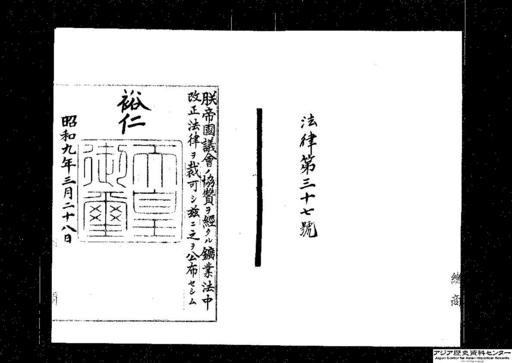 法律第三十七號
朕帝國議會ノ協贊ヲ經タル鑛業法中
改正法律ヲ裁可シ玆ニ之ヲ公布セシム
裕仁
天皇御璽
昭和九年三月二十八日
アジア歴史資料センター
Japan Center for Asian Historical Records